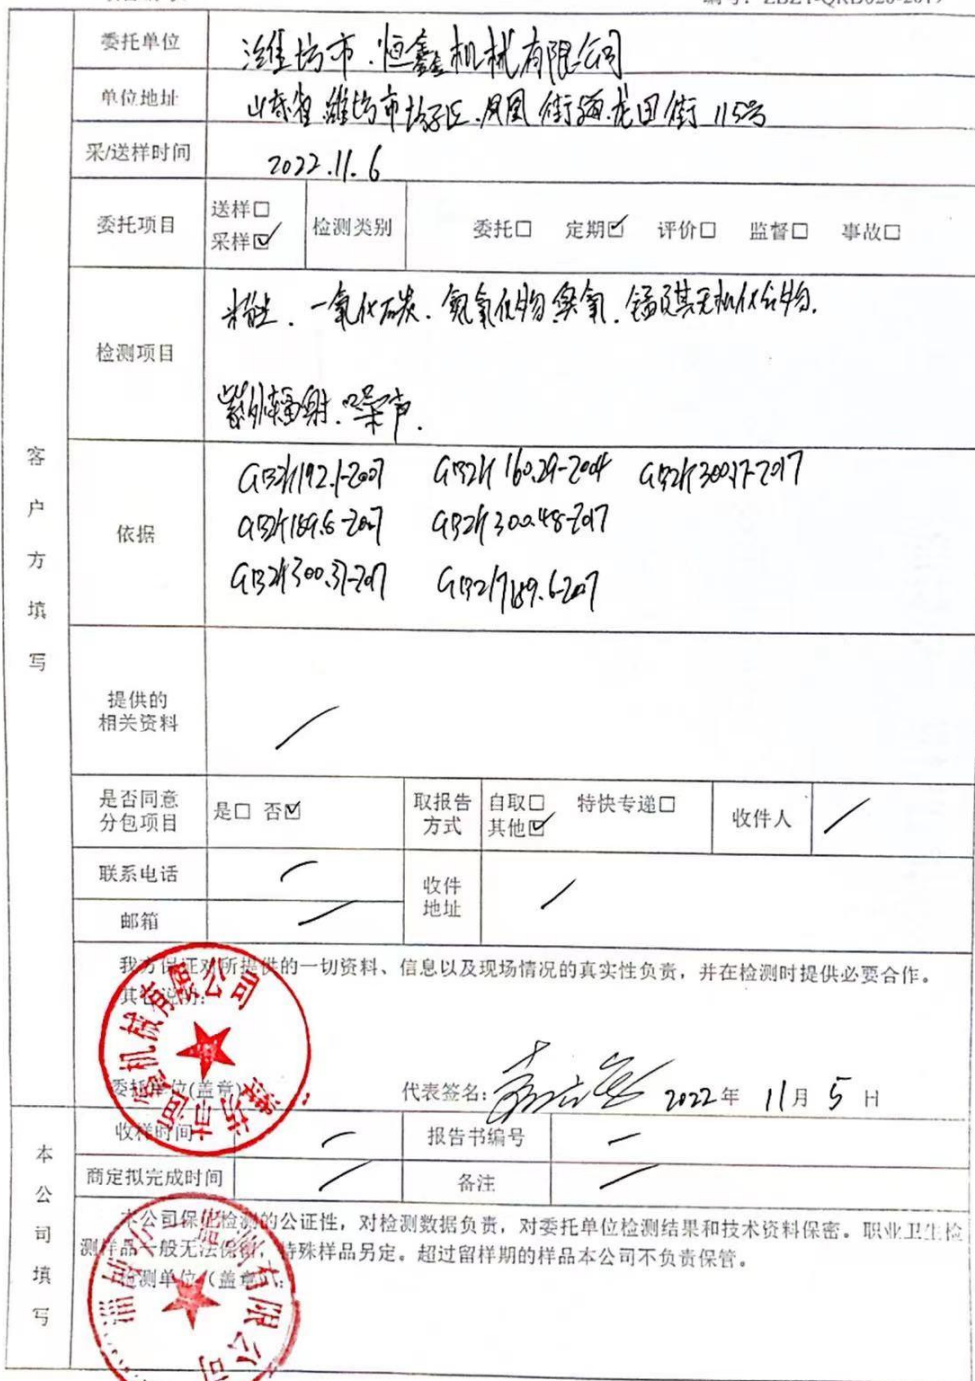 委托单位 潍坊市恒鑫机械有限公司
单位地址 山东省潍坊市坊子区凤凰街 龙田街115号
采/送样时间 2022.11.6
委托项目 送样□ 采样☑ 检测类别 委托□ 定期☑ 评价□ 监督□ 事故□
检测项目 粉尘、一氧化碳、氮氧化物 臭氧、锰及其无机化合物、
紫外辐射、噪声.
客户方填写
依据 GBZ/T192.1-2007 GBZ/T160.29-2004 GBZ/T300.17-2017
GBZ/T189.8-2007 GBZ/T300.48-2017
GBZ/T300.37-2017 GBZ/T189.6-2007
提供的相关资料 /
是否同意分包项目 是□ 否☑ 取报告方式 自取□ 特快专递□ 其他☑ 收件人 /
联系电话 / 收件地址 /
邮箱 /
我方保证对所提供的一切资料、信息以及现场情况的真实性负责，并在检测时提供必要合作。
其它说明：
委托单位(盖章) 代表签名： 2022年 11月 5日
本公司填写
收样时间 / 报告书编号 /
商定拟完成时间 / 备注 /
本公司保证检测的公证性，对检测数据负责，对委托单位检测结果和技术资料保密。职业卫生检
测样品一般无法保留，特殊样品另定。超过留样期的样品本公司不负责保管。
检测单位（盖章）：